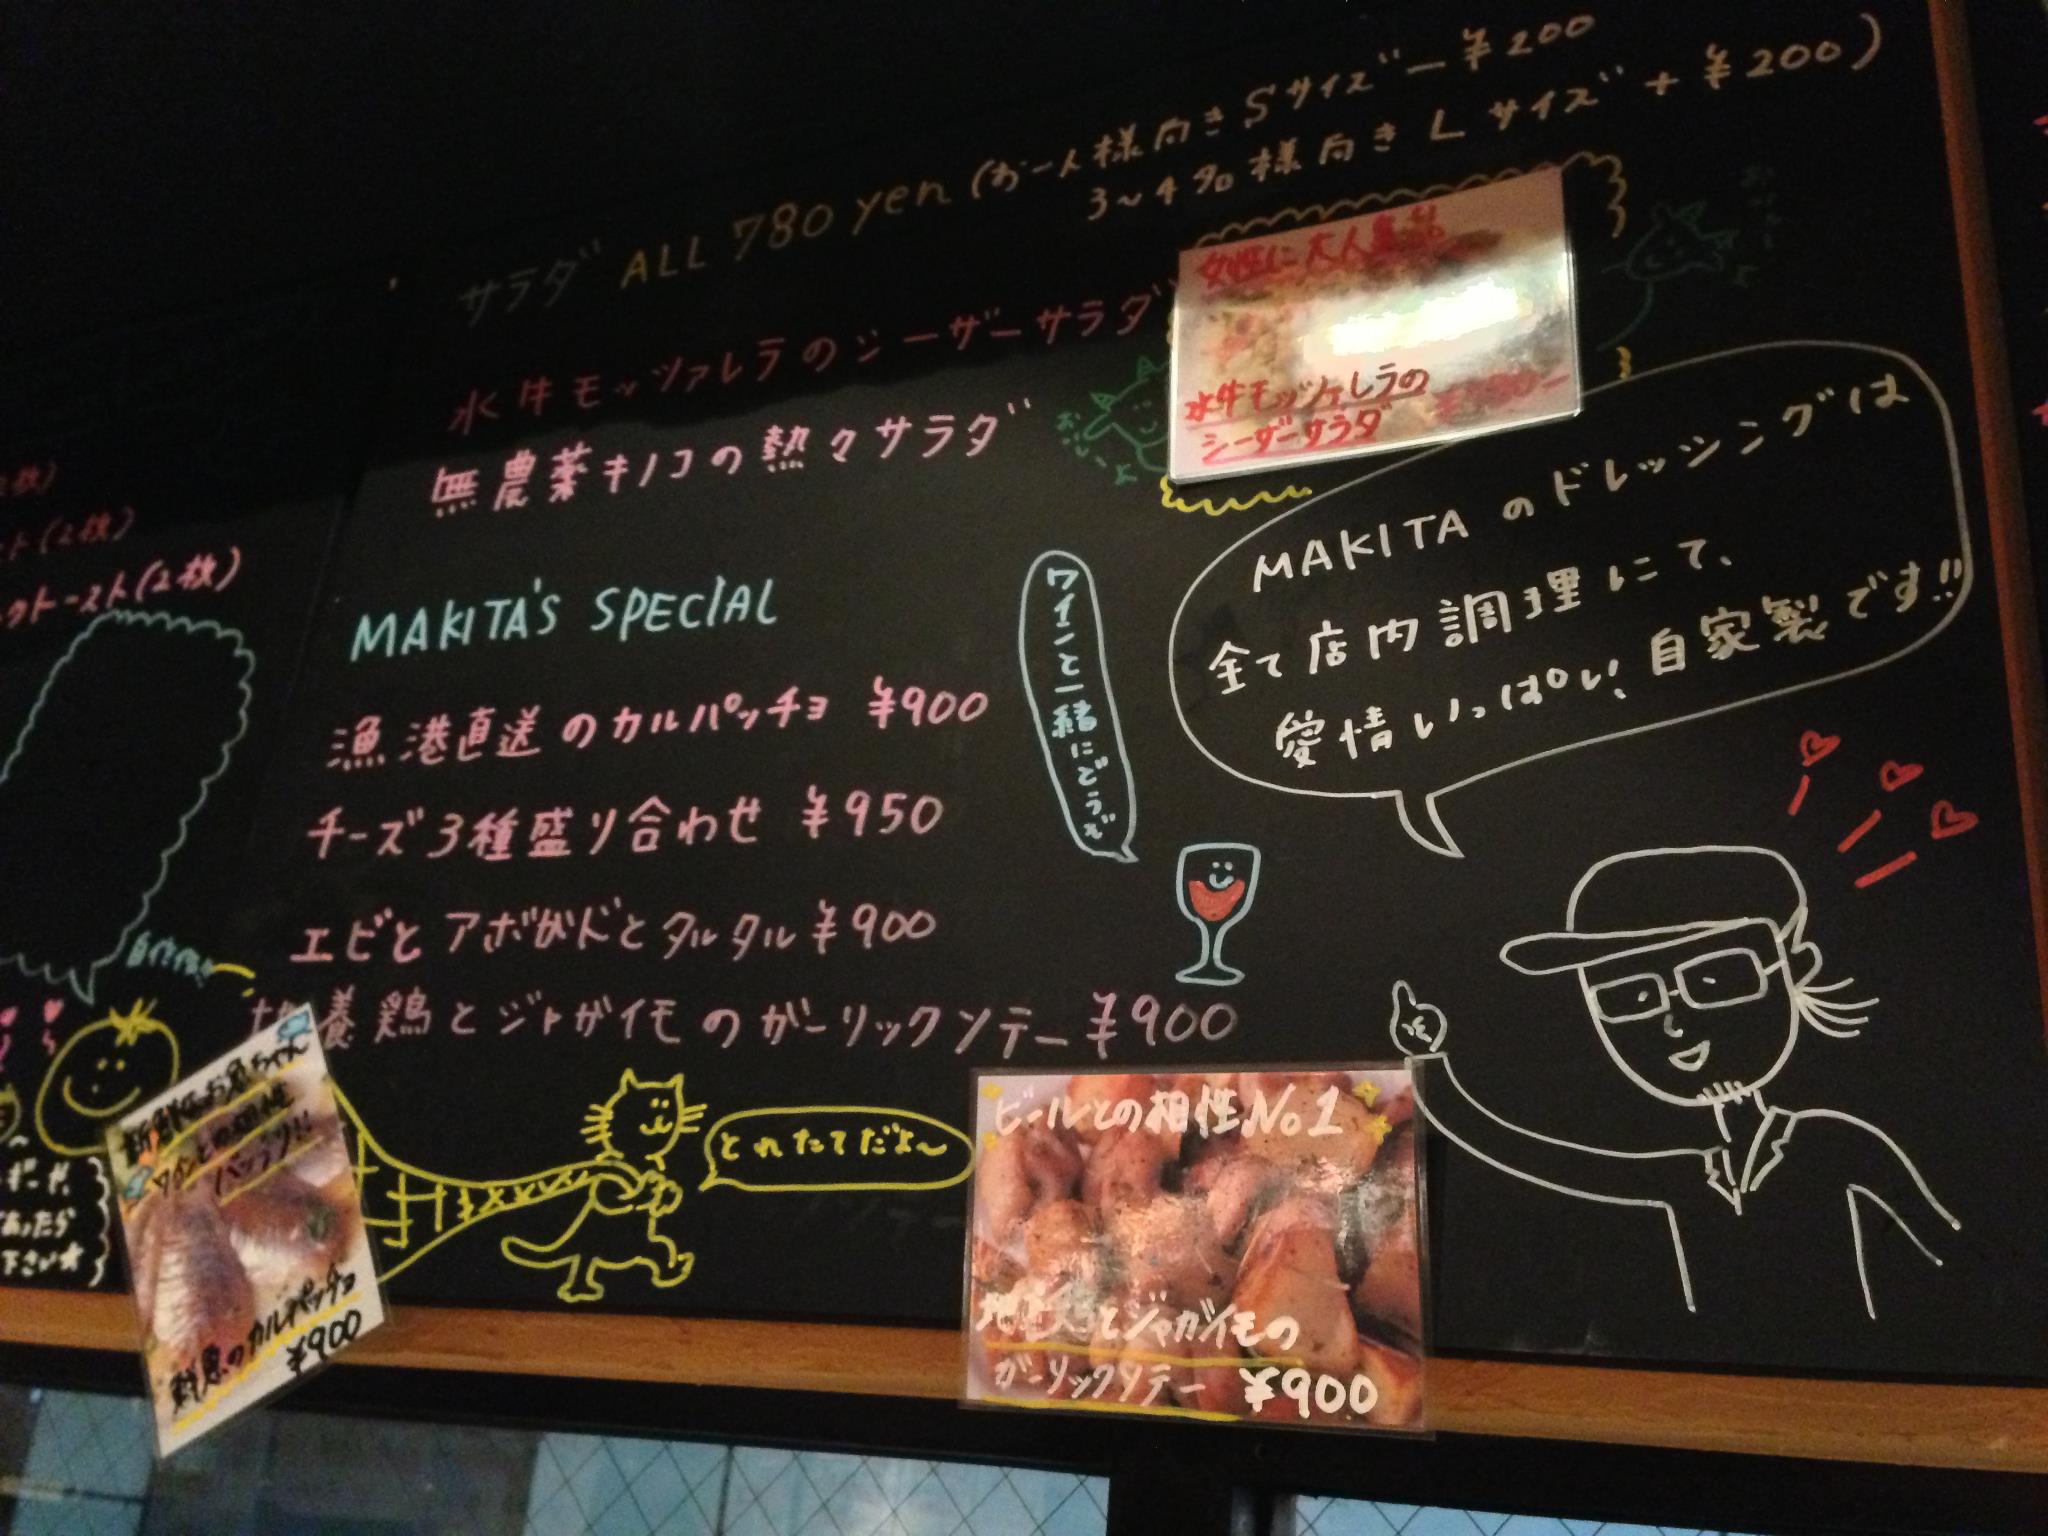 サラダ ALL 780 yen (お一人様向き Sサイズ －￥200
3～4名様向き Lサイズ ＋￥200)
水牛モッツァレラのシーザーサラダ
無農薬キノコの熱々サラダ
女性に大人気!!
水牛モッツァレラの
シーザーサラダ
MAKITAのドレッシングは
全て店内調理にて、
愛情いっぱい! 自家製です!!
MAKITA'S SPECIAL
漁港直送のカルパッチョ ￥900
チーズ3種盛り合わせ ￥950
エビとアボガドとタルタル ￥900
養鶏とジャガイモのガーリックソテー ￥900
ワインと一緒にどうぞ
とれたてだよ～
ビールとの相性No1
とジャガイモの
ガーリックソテー ￥900
お魚ちゃん
ワインとの相性
バッチリ!!
鮮魚のカルパッチョ
￥900
スト(2枚)
クトースト(2枚)
ボード、
あったら
下さい☆